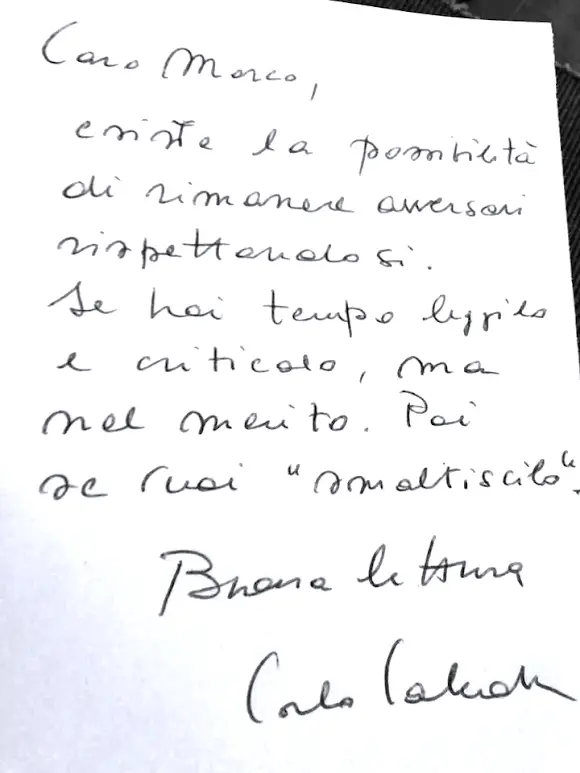 Caro Marco,
esiste la possibilità
di rimanere avversari
rispettandosi.
Se hai tempo leggilo
e criticalo, ma
nel merito. Poi
se vuoi "smaltiscilo".
Buona lettura
Carlo